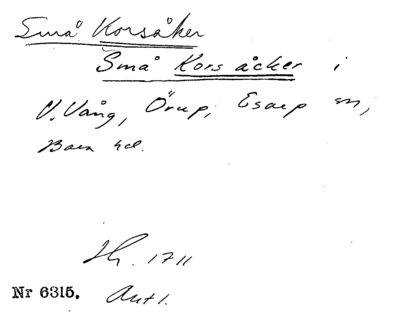 Små Korsåker
Små Kors åcker i
V. Vång, Örup, Esarp sn,
Bara hd.
Jb. 1711
Nr 6315. Ant 1.